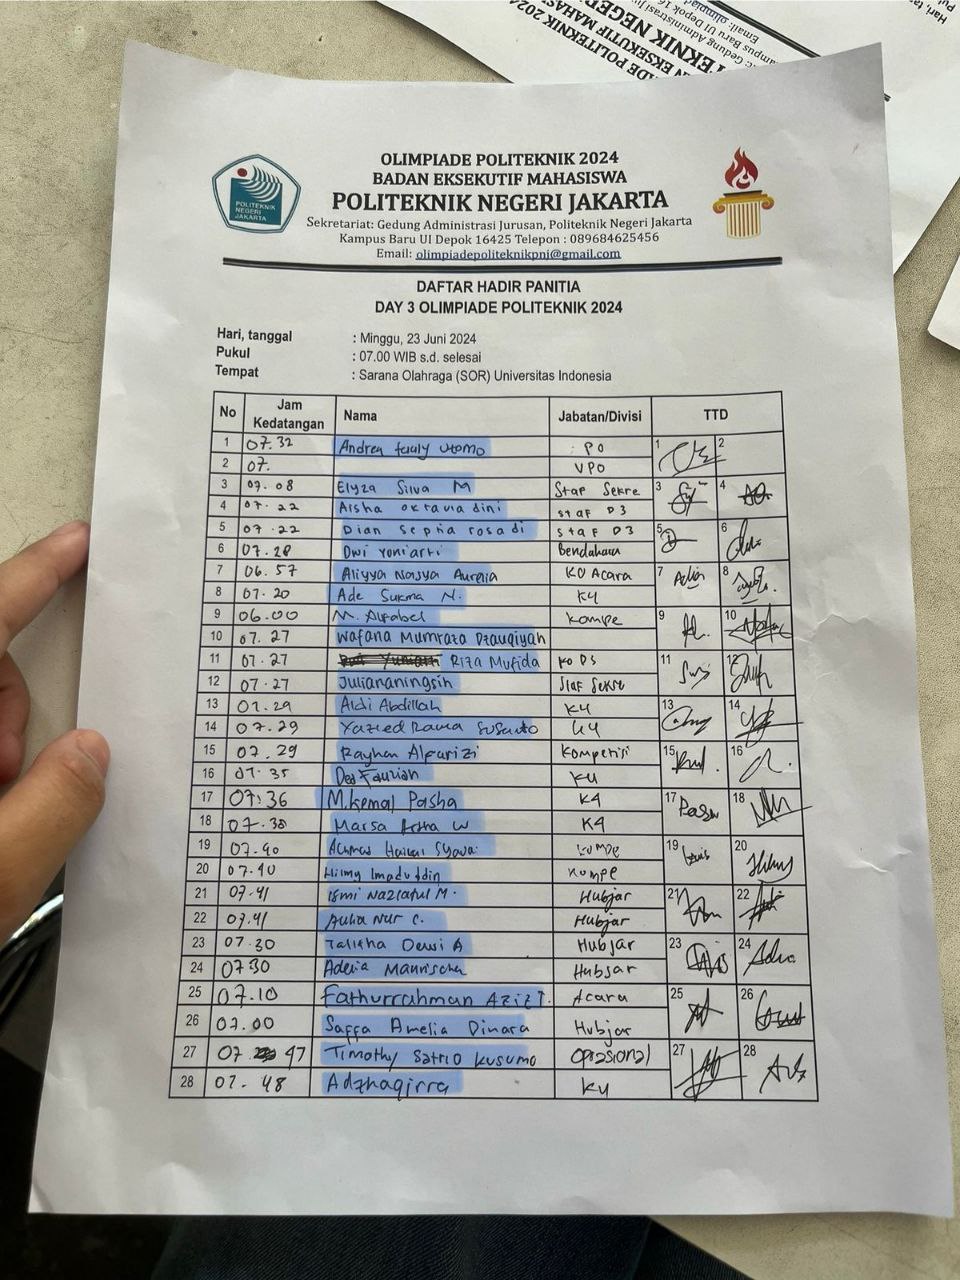 OLIMPIADE POLITEKNIK 2024
BADAN EKSEKUTIF MAHASISWA
POLITEKNIK NEGERI JAKARTA
Sekretariat: Gedung Administrasi Jurusan, Politeknik Negeri Jakarta
Kampus Baru UI Depok 16425 Telepon : 089684625456
Email: olimpiadepoliteknikpnj@gmail.com
POLITEKNIK
NEGERI
JAKARTA
DAFTAR HADIR PANITIA
DAY 3 OLIMPIADE POLITEKNIK 2024
Hari, tanggal : Minggu, 23 Juni 2024
Pukul : 07.00 WIB s.d. selesai
Tempat : Sarana Olahraga (SOR) Universitas Indonesia
No Jam Kedatangan Nama Jabatan/Divisi TTD
1 07.32 Andrea fauly utomo PO 1 2
2 07. VPO
3 07.08 Elyza Silva M Staf Sekre 3 4
4 07.22 Aisha oktavia dini staf D3
5 07.22 Dian septia rosadi staf D3 5 6
6 07.28 Dwi Yoniarti Bendahara
7 06.57 Aliyya Nasya Aurelia KO Acara 7 8
8 07.20 Ade Sukma N. K4
9 06.00 M. Alfabel kompe 9 10
10 07.27 Wafana Mumtaza Dzauqiyah
11 07.27 Riza Mufida KO DS 11 12
12 07.27 Juliananingsih Staf Sekre
13 07.29 Aldi Abdillah K4 13 14
14 07.29 Yazied Rama Susanto K4
15 07.29 Rayhan Alfarizi Kompetisi 15 16
16 07.35 Dea Fauziah K4
17 07:36 M.Kemal Pasha K4 17 18
18 07.38 Marsa Artha W K4
19 07.40 Haikal kompe 19 20
20 07.40 Hilmy Imaduddin kompe
21 07.41 Ismi Nazlatul M. Hubjar 21 22
22 07.41 Aulia Nur C. Hubjar
23 07.30 Talitha Dewi A Hubjar 23 24
24 07.30 Adelia Mannischa Hubjar
25 07.10 Fathurrahman Aziz T. Acara 25 26
26 07.00 Saffa Amelia Dinara Hubjar
27 07. 47 Timothy Satrio Kusumo Oprasional 27 28
28 07.48 Adzhaqirra K4